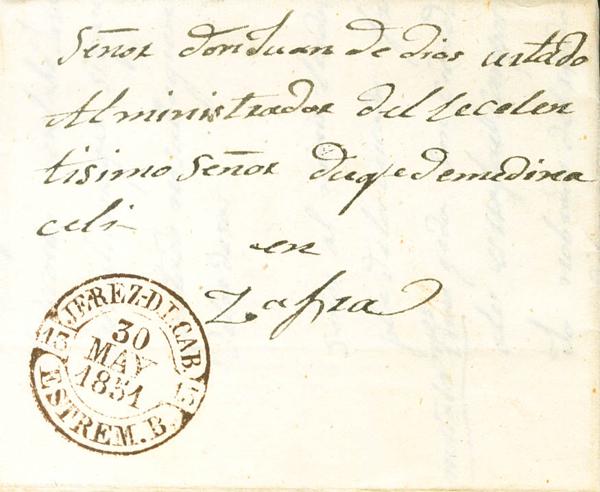 Señor don Juan de dios urtado
Alministrador del Secelen
tisimo Señor duqe demedina
celi
en
Zafra
JEREZ-D.L.CAB.
13 13
30
MAY
1851
ESTREM. B.